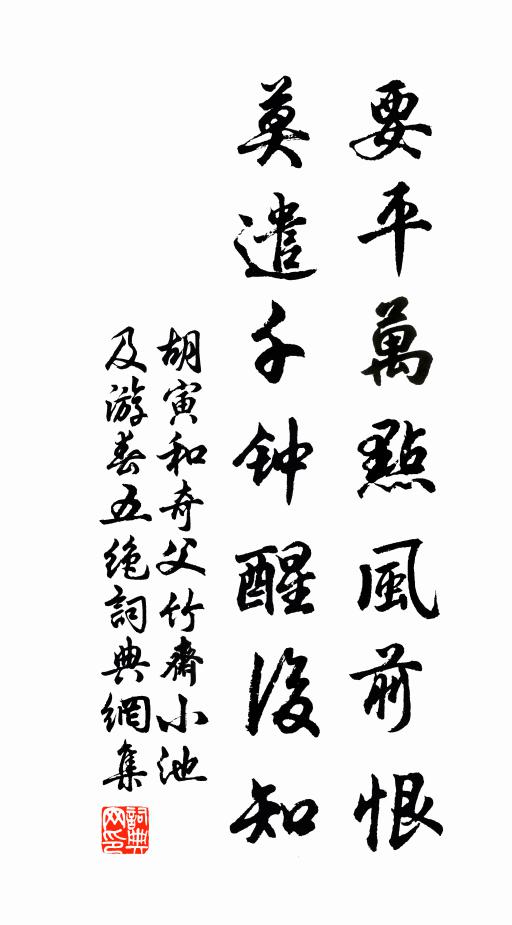 要平萬點風前恨
莫遣千钟醒後知
胡寅和奇父竹齋小池
及游春五绝詞典網集
詞典
网印